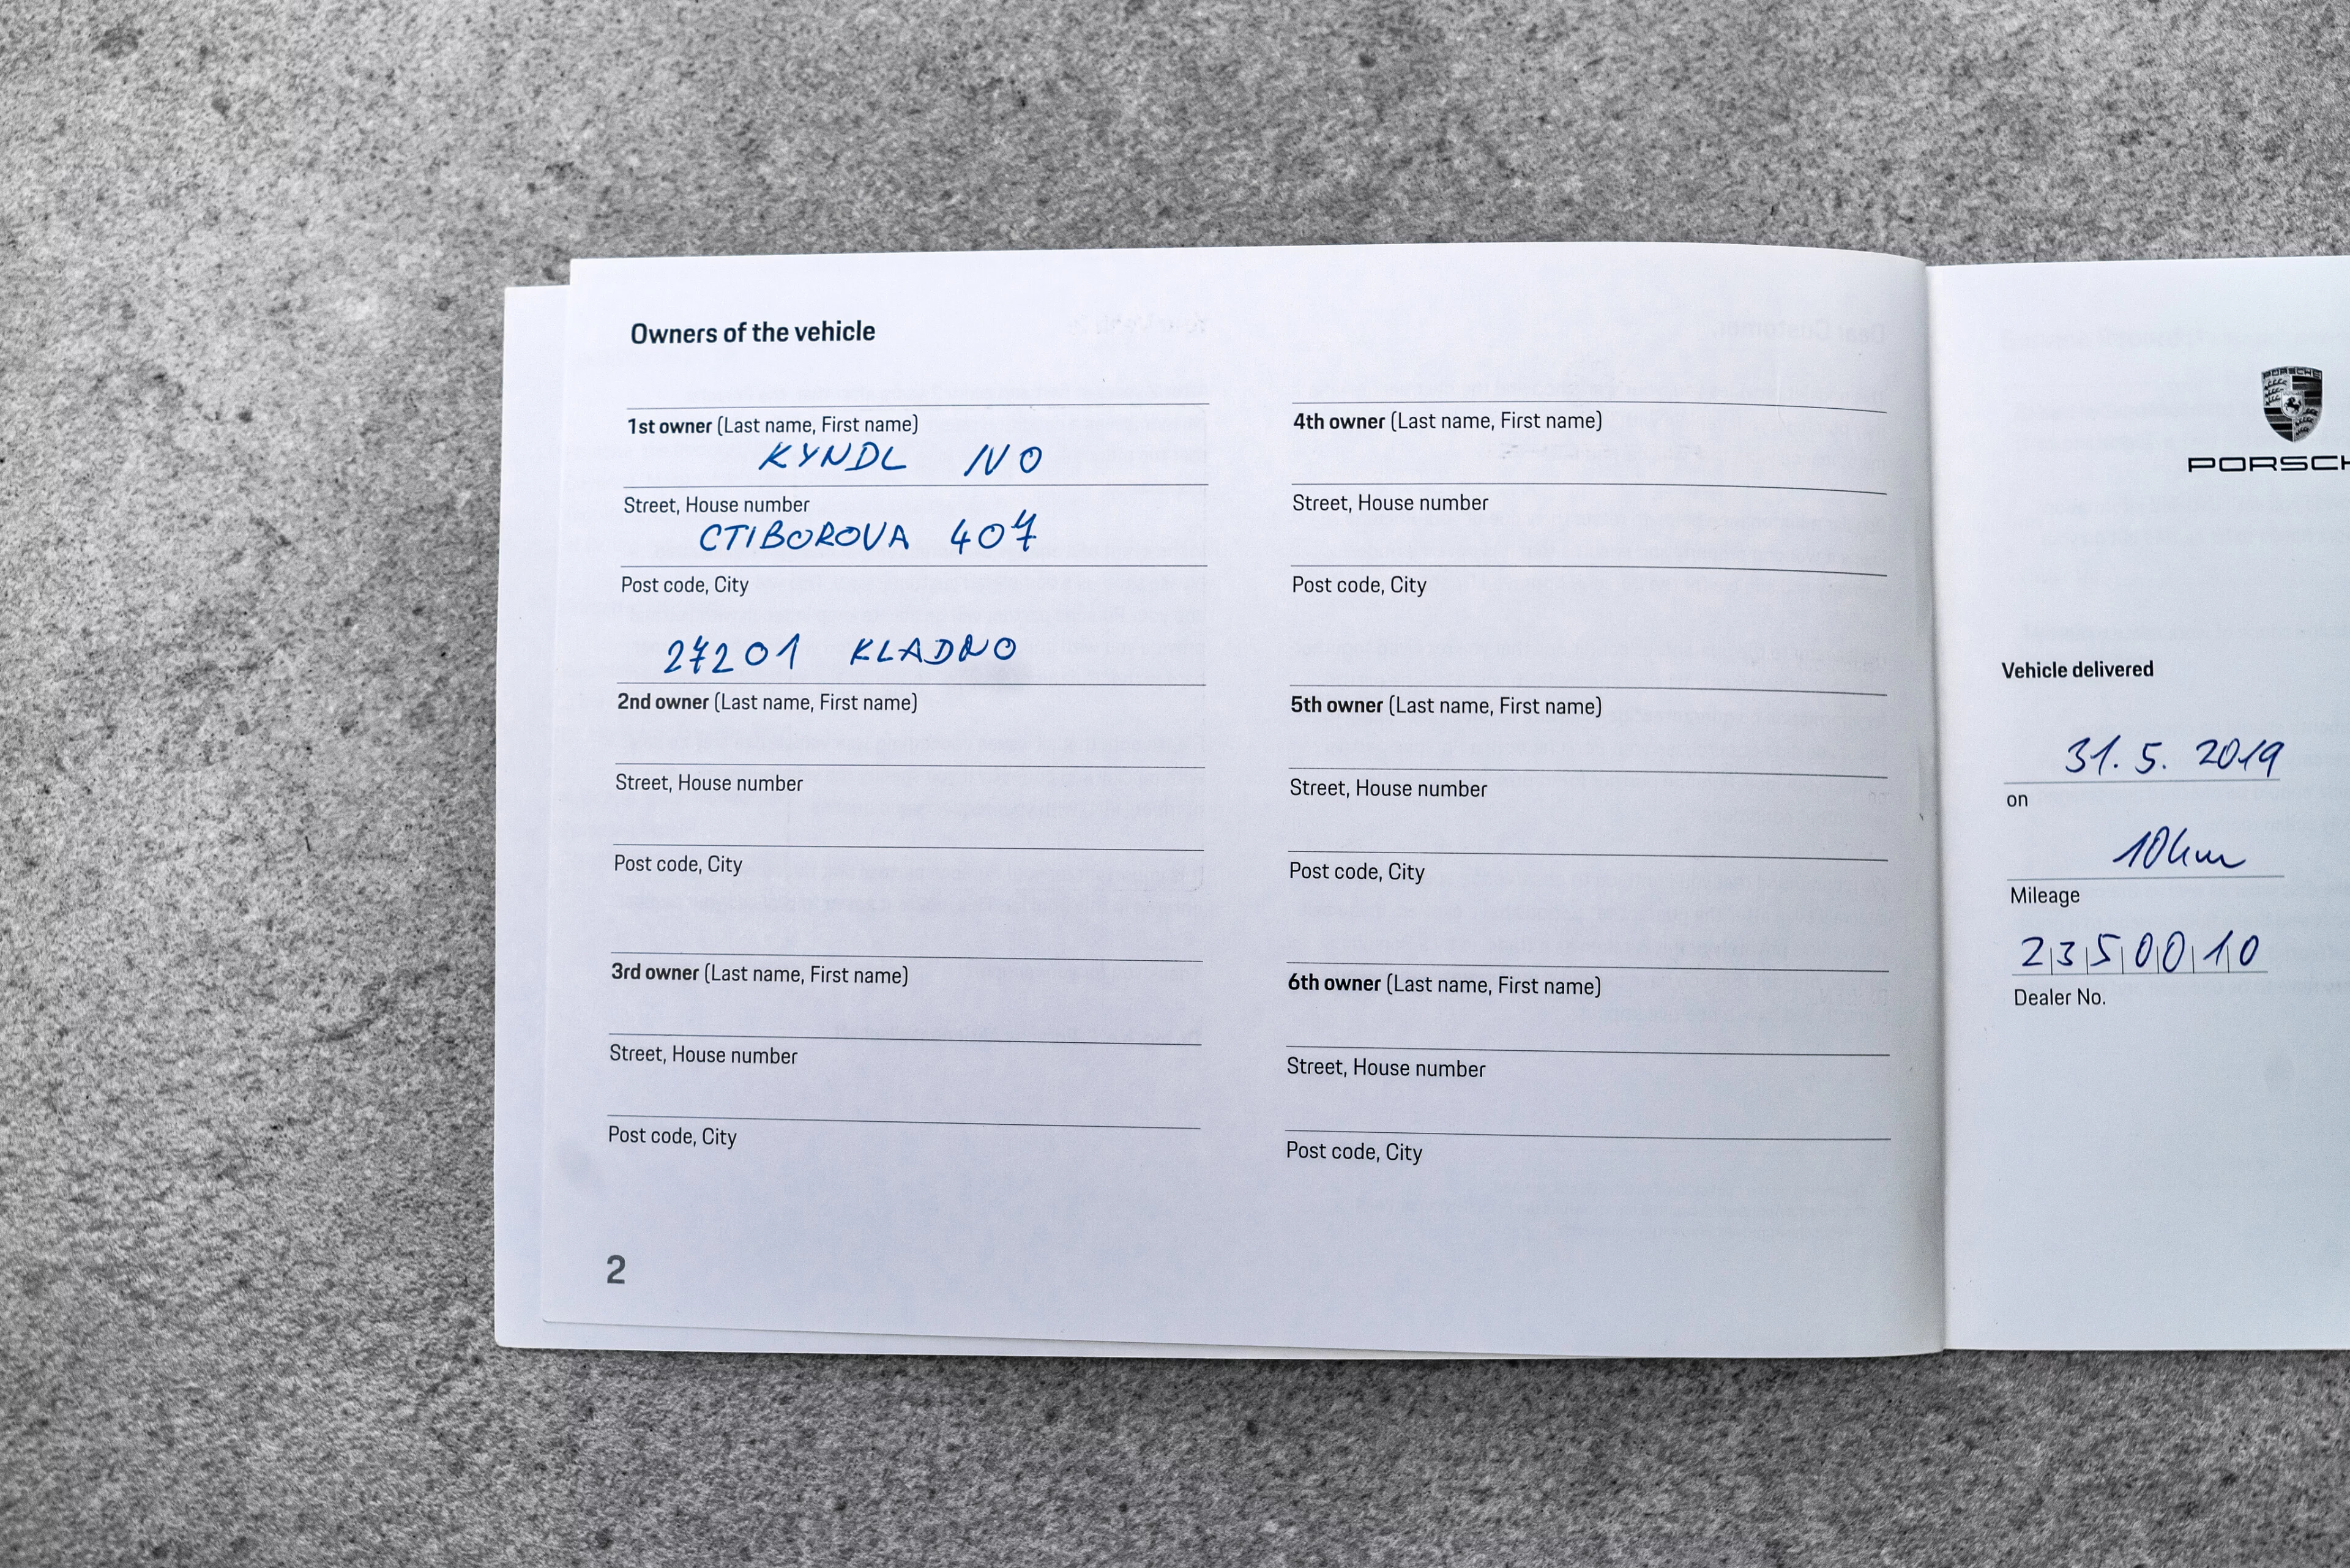 Owners of the vehicle
1st owner (Last name, First name)
KYNDL IVO
Street, House number
CTIBOROVA 407
Post code, City
27201 KLADNO
2nd owner (Last name, First name)
Street, House number
Post code, City
3rd owner (Last name, First name)
Street, House number
Post code, City
4th owner (Last name, First name)
Street, House number
Post code, City
5th owner (Last name, First name)
Street, House number
Post code, City
6th owner (Last name, First name)
Street, House number
Post code, City
2
PORSCHE
PORSCH
Vehicle delivered
31. 5. 2019
on
10km
Mileage
2350010
Dealer No.